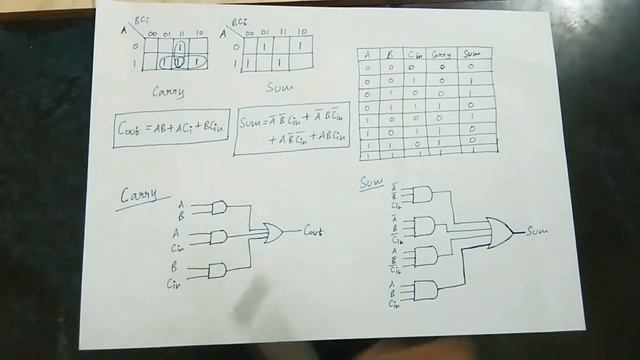 BCi
BCi
A 00 01 11 10
A 00 01 11 10
0 1
0 1 1
1 1 1 1
1 1 1
Carry
Sum
Cout = AB + ACi + BCin
Sum = A̅ B̅ Cin + A̅ B C̅in
+ A B̅ C̅in + ABCin
A B Cin Carry Sum
0 0 0 0 0
0 0 1 0 1
0 1 0 0 1
0 1 1 1 0
1 0 0 0 1
1 0 1 1 0
1 1 0 1 0
1 1 1 1 1
Carry
A
B
A
Cin
B
Cin
Cout
Sum
A̅
B̅
Cin
A̅
B
C̅in
A
B̅
C̅in
A
B
Cin
Sum